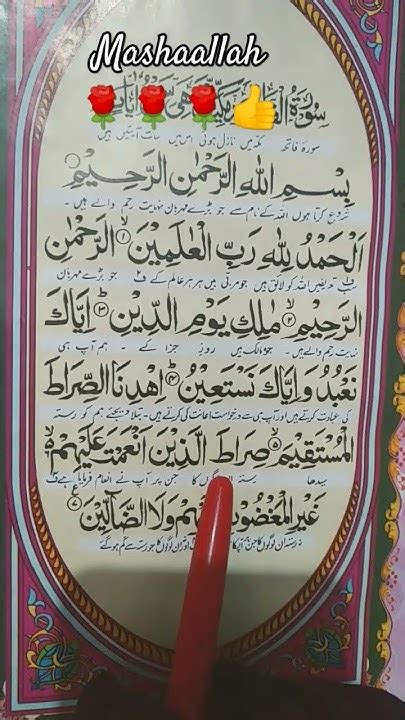 Mashaallah
🌹🌹🌹👍
سُوْرَةُ
سورۂ فاتحہ مکہ میں نازل ہوئی اس میں سات آیتیں ہیں
بِسْمِ اللهِ الرَّحْمٰنِ الرَّحِيْمِ
شروع کرتا ہوں اللہ کے نام سے جو بڑے مہربان نہایت رحم والے ہیں ۔
اَلْحَمْدُ لِلّٰهِ رَبِّ الْعٰلَمِيْنَ ۱ الرَّحْمٰنِ
سب تعریفیں اللہ کو لائق ہیں جو مربی ہیں ہر ہر عالم کے جو بڑے مہربان
الرَّحِيْمِ ۲ مٰلِكِ يَوْمِ الدِّيْنِ ۳ اِيَّاكَ
نہایت رحم والے ہیں ۔ جو مالک ہیں روز جزا کے ۔ ہم آپ ہی
نَعْبُدُ وَاِيَّاكَ نَسْتَعِيْنُ ۴ اِهْدِنَا الصِّرَاطَ
کی عبادت کرتے ہیں اور آپ ہی سے درخواست اعانت کی کرتے ہیں ۔ بتلا دیجئے ہم کو رستہ
الْمُسْتَقِيْمَ ۵ صِرَاطَ الَّذِيْنَ اَنْعَمْتَ عَلَيْهِمْ ۶
سیدھا رستہ لوگوں کا جن پر آپ نے انعام فرمایا ہے
غَيْرِ الْمَغْضُوْبِ وَلَا الضَّآلِّيْنَ ۷
نہ رستہ ان لوگوں کا جن ان لوگوں کا جو رستہ سے گم ہو گئے